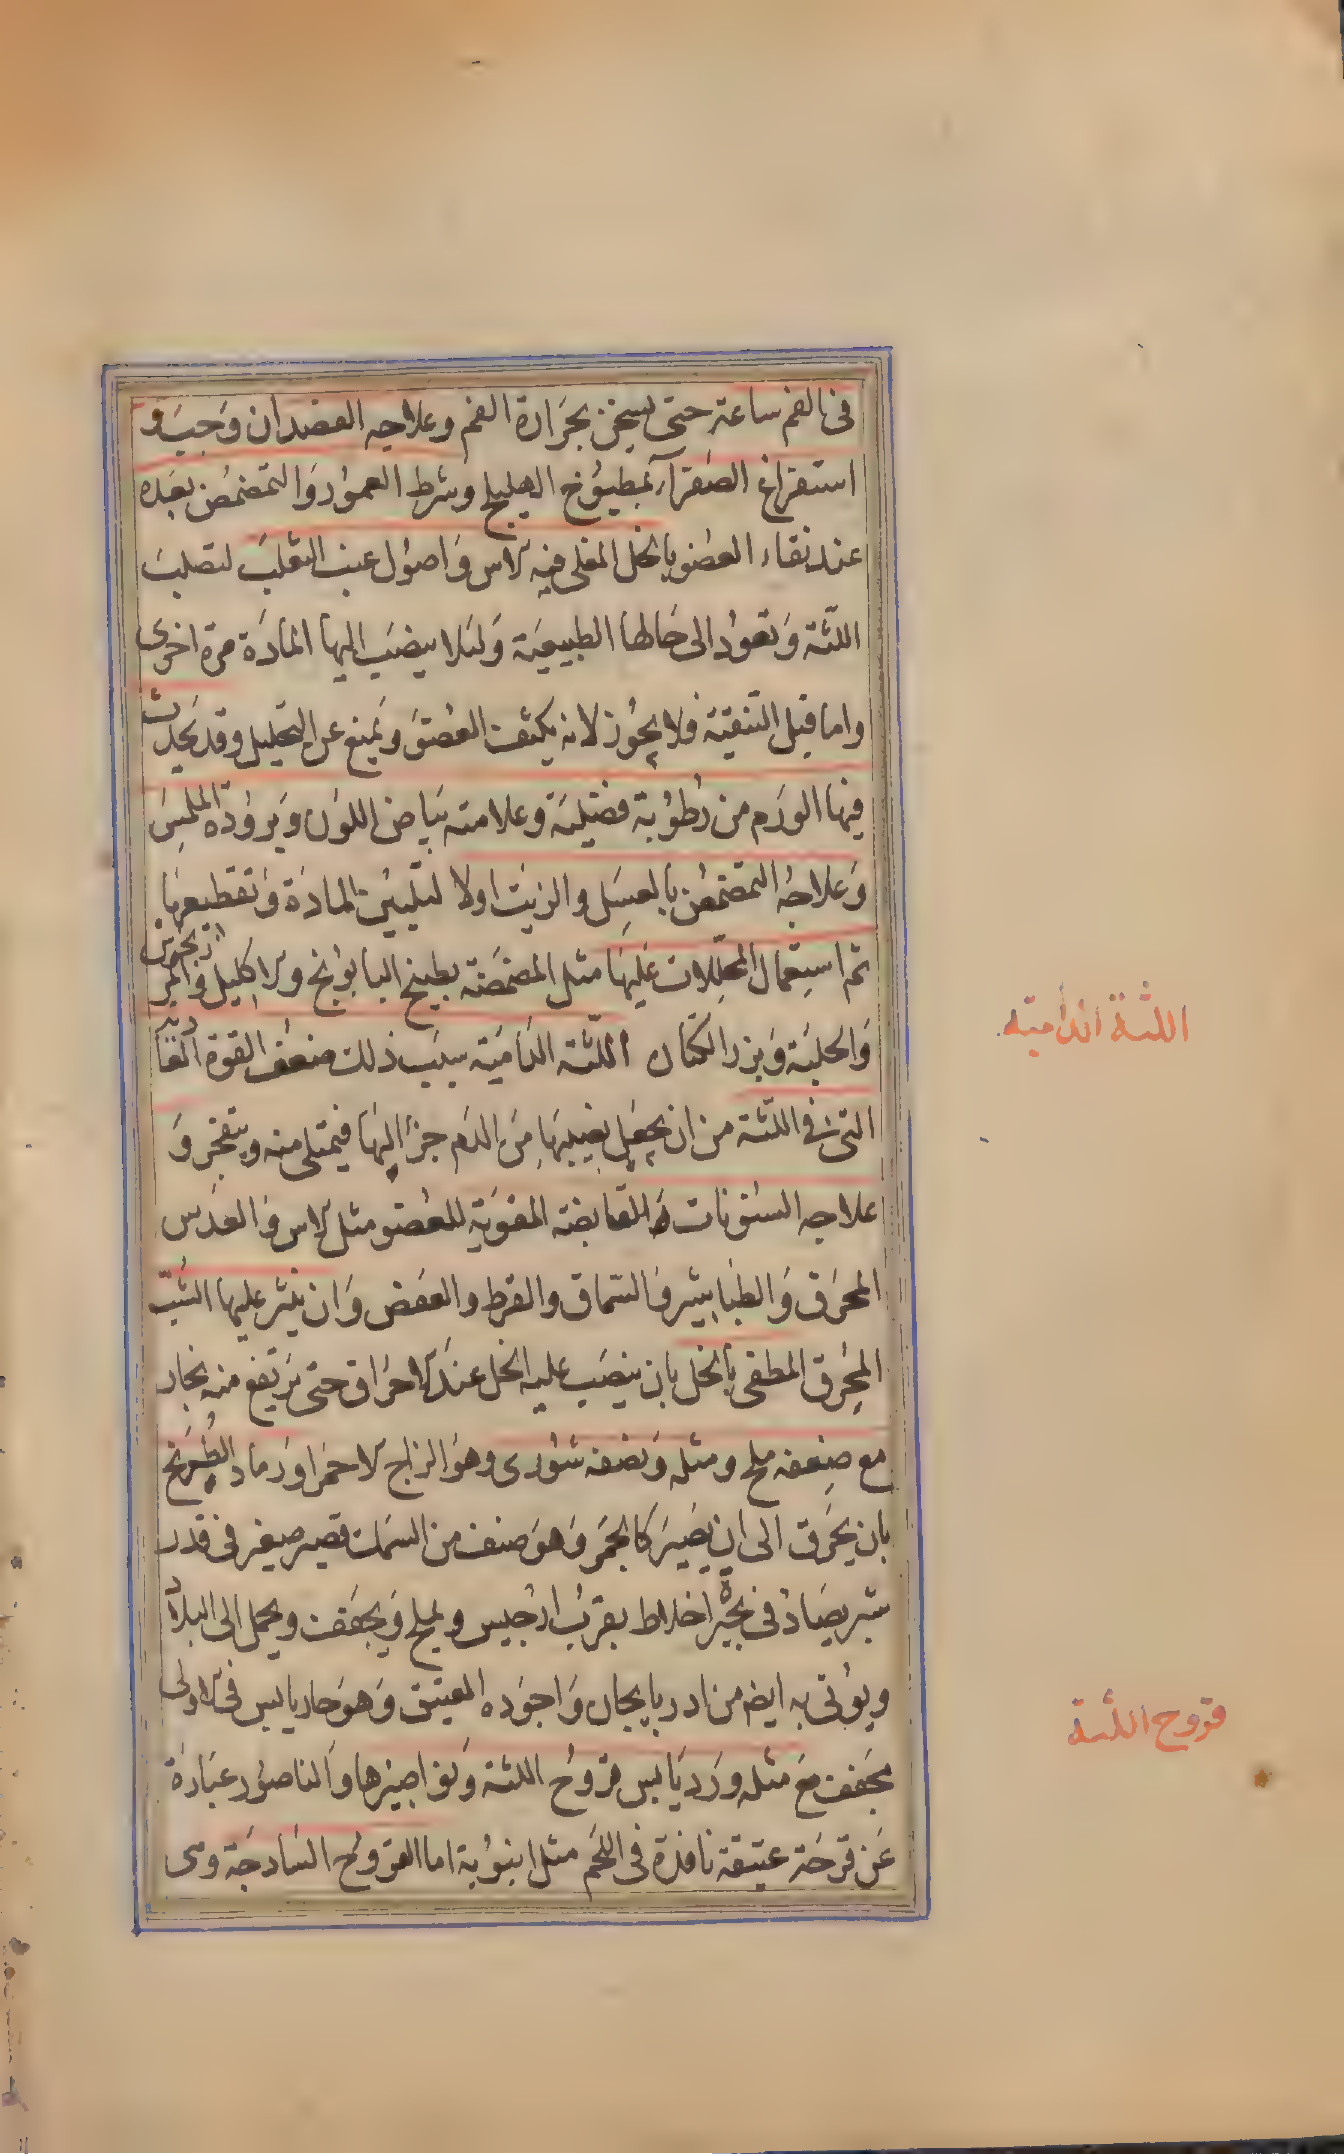 فى الفم ساعة حتى يسخن بحرارة الفم وعلاجه الفصد ان وجب و
استفراغ الصفرآء بمطبوخ الهليلج وشرط العمور والتمضمض بعده
عند نقاء العضو بالخل المغلى فيه لاس واصول عنب الثعلب لتصلب
اللثة وتعود الى حالها الطبيعية ولئلا ينصب اليها المادة مرة اخرى
واما قبل التنقية فلا يجوز لانه يكثف العضو ويمنع عن التحليل وقد يحدث
فيها الورم من رطوبة فضلية وعلامته بياض اللون وبرودة الملمس
وعلاجه التمضمض بالعسل والزيت اولا لتليين المادة وتقطيعها
ثم استعمال المحللات عليها مثل المضمضة بطبيخ البابونج ولاكليل والمرزنجوش
والحلبة وبزر الكتان اللثة الدامية سبب ذلك ضعف القوة الغاذية
التى فى اللثة من ان يجعل نصيبها من الدم جزأ لها فيمتلى منه ويتفجر و
علاجه السنونات القابضة المقوية للعضو مثل لاس والعدس
المحرق والطباشير والسماق والقرط والعفص وان ينثر عليها الشب
المحرق المطفى بالخل بان ينصب عليه الخل عند لاحراق حتى يرتفع منه بخار
مع ضعفه ملح ومثله ونصفه سورى وهو الزاج لاحمر او رماد الطريخ
بان يحرق الى ان يصير كالجمر وهو صنف من السمك قصير صغير فى قدر
شبر يصاد فى بحيرة اخلاط بقرب ارجيس ويملح ويجفف ويحمل الى البلاد
ويؤتى به ايضا من ادربايجان واجوده العتيق وهو حار يابس فى لاولى
مجفف مع مثله ورد يابس قروح اللثة ونواصيرها والناصور عبارة
عن قرحة عتيقة نافذة فى اللحم مثل انبوبة اما القروح الساذجة وهى
اللثة الدامية
قروح اللثة